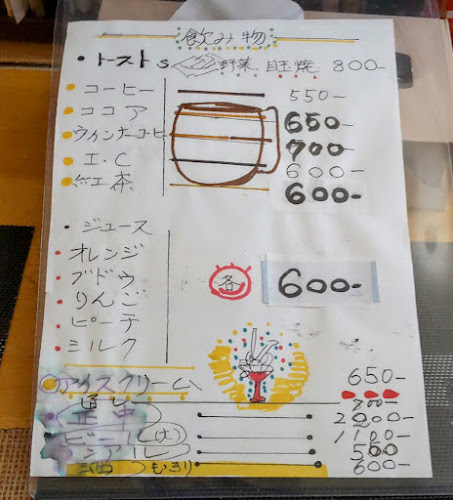 飲み物
・トースト 野菜、目玉焼 800-
コーヒー 550-
ココア 650-
ウインナーコーヒ 700-
I.C 600-
紅茶 600-
・ジュース
オレンジ
ブドウ
りんご
ピーチ
ミルク
各 600-
アイスクリーム 650-
800-
2000-
1100-
500-
600-